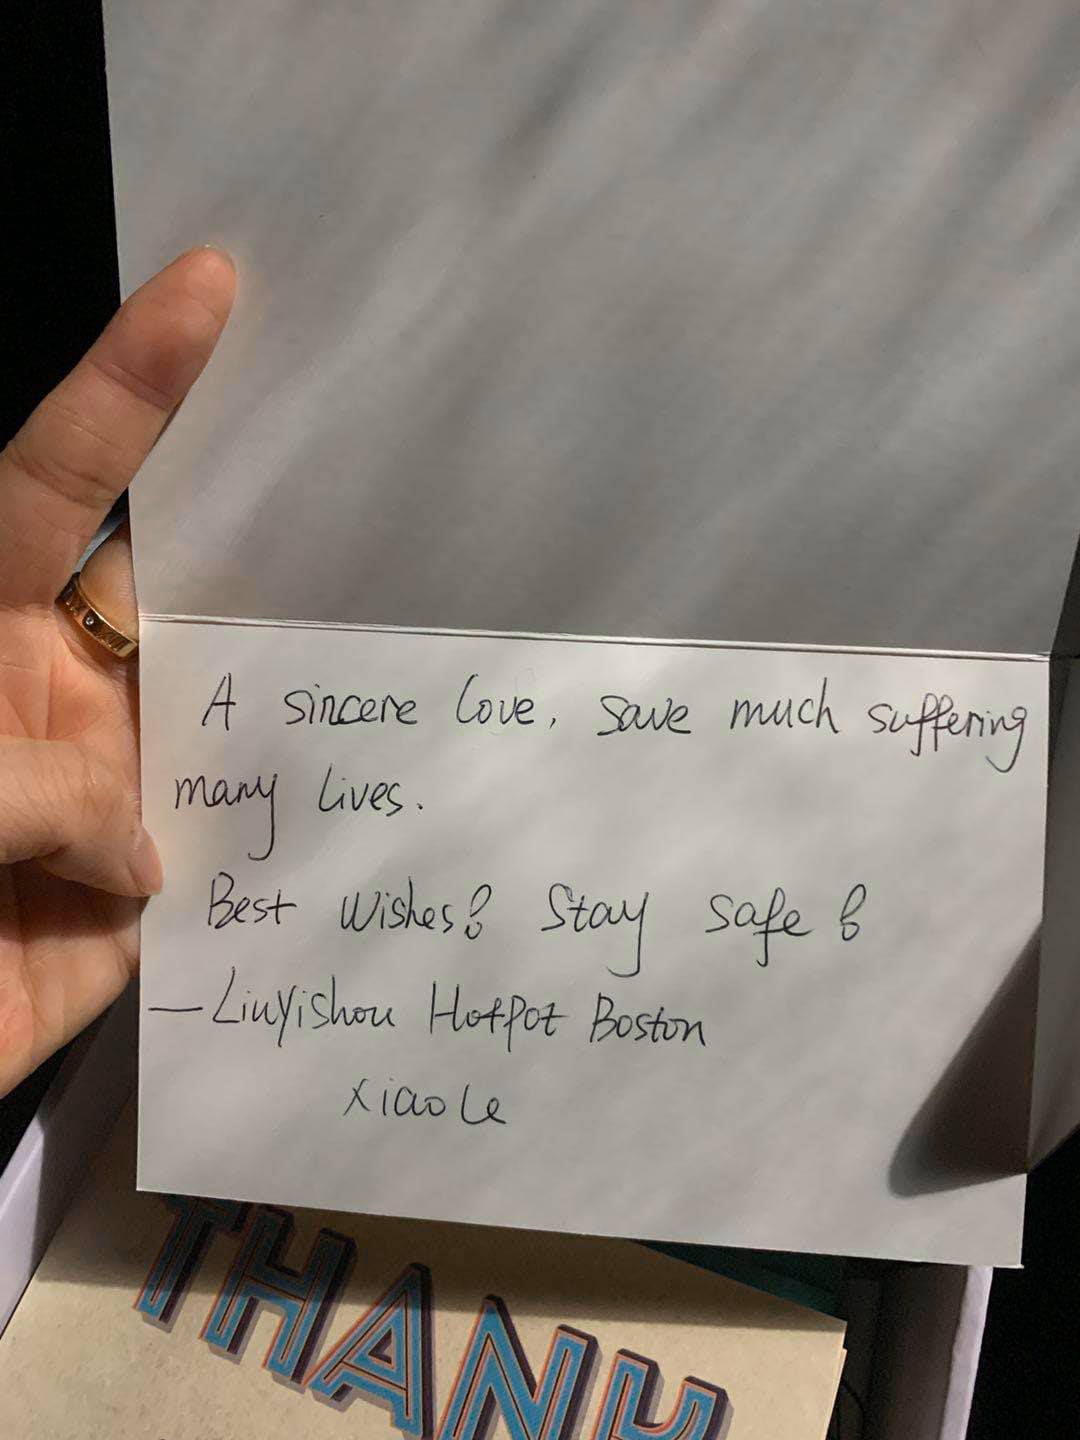 A sincere love, save much suffering
many lives.
Best Wishes! Stay safe!
— Liuyishou Hotpot Boston
Xiao Le
THANK